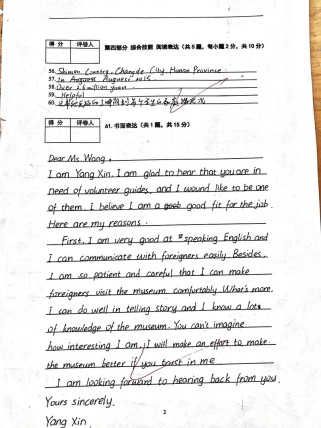 得 分 评卷人
第四部分 综合技能 阅读表达（共5题，每小题2分，共10分）
56. Shimen Country, Changde City Hunan Province.
57. In August 2015.
58. Over 2.6 million yuan.
59. Helpful
60.
得 分 评卷人
61. 书面表达（共1题，共15分）
Dear Ms. Wang,
I am Yang Xin. I am glad to hear that you are in
need of volunteer guides, and I wound like to be one
of them. I believe I am a good fit for the job.
Here are my reasons.
First, I am very good at speaking English and
I can communicate with foreigners easily Besides,
I am so patient and careful that I can make
foreigners visit the museum comfortably. What's more,
I can do well in telling story and I know a lots
of knowledge of the museum. You can't imagine
how interesting I am. I will make an effort to make
the museum better if you trust in me
I am looking forward to hearing back from you.
Yours sincerely,
Yang Xin.
2